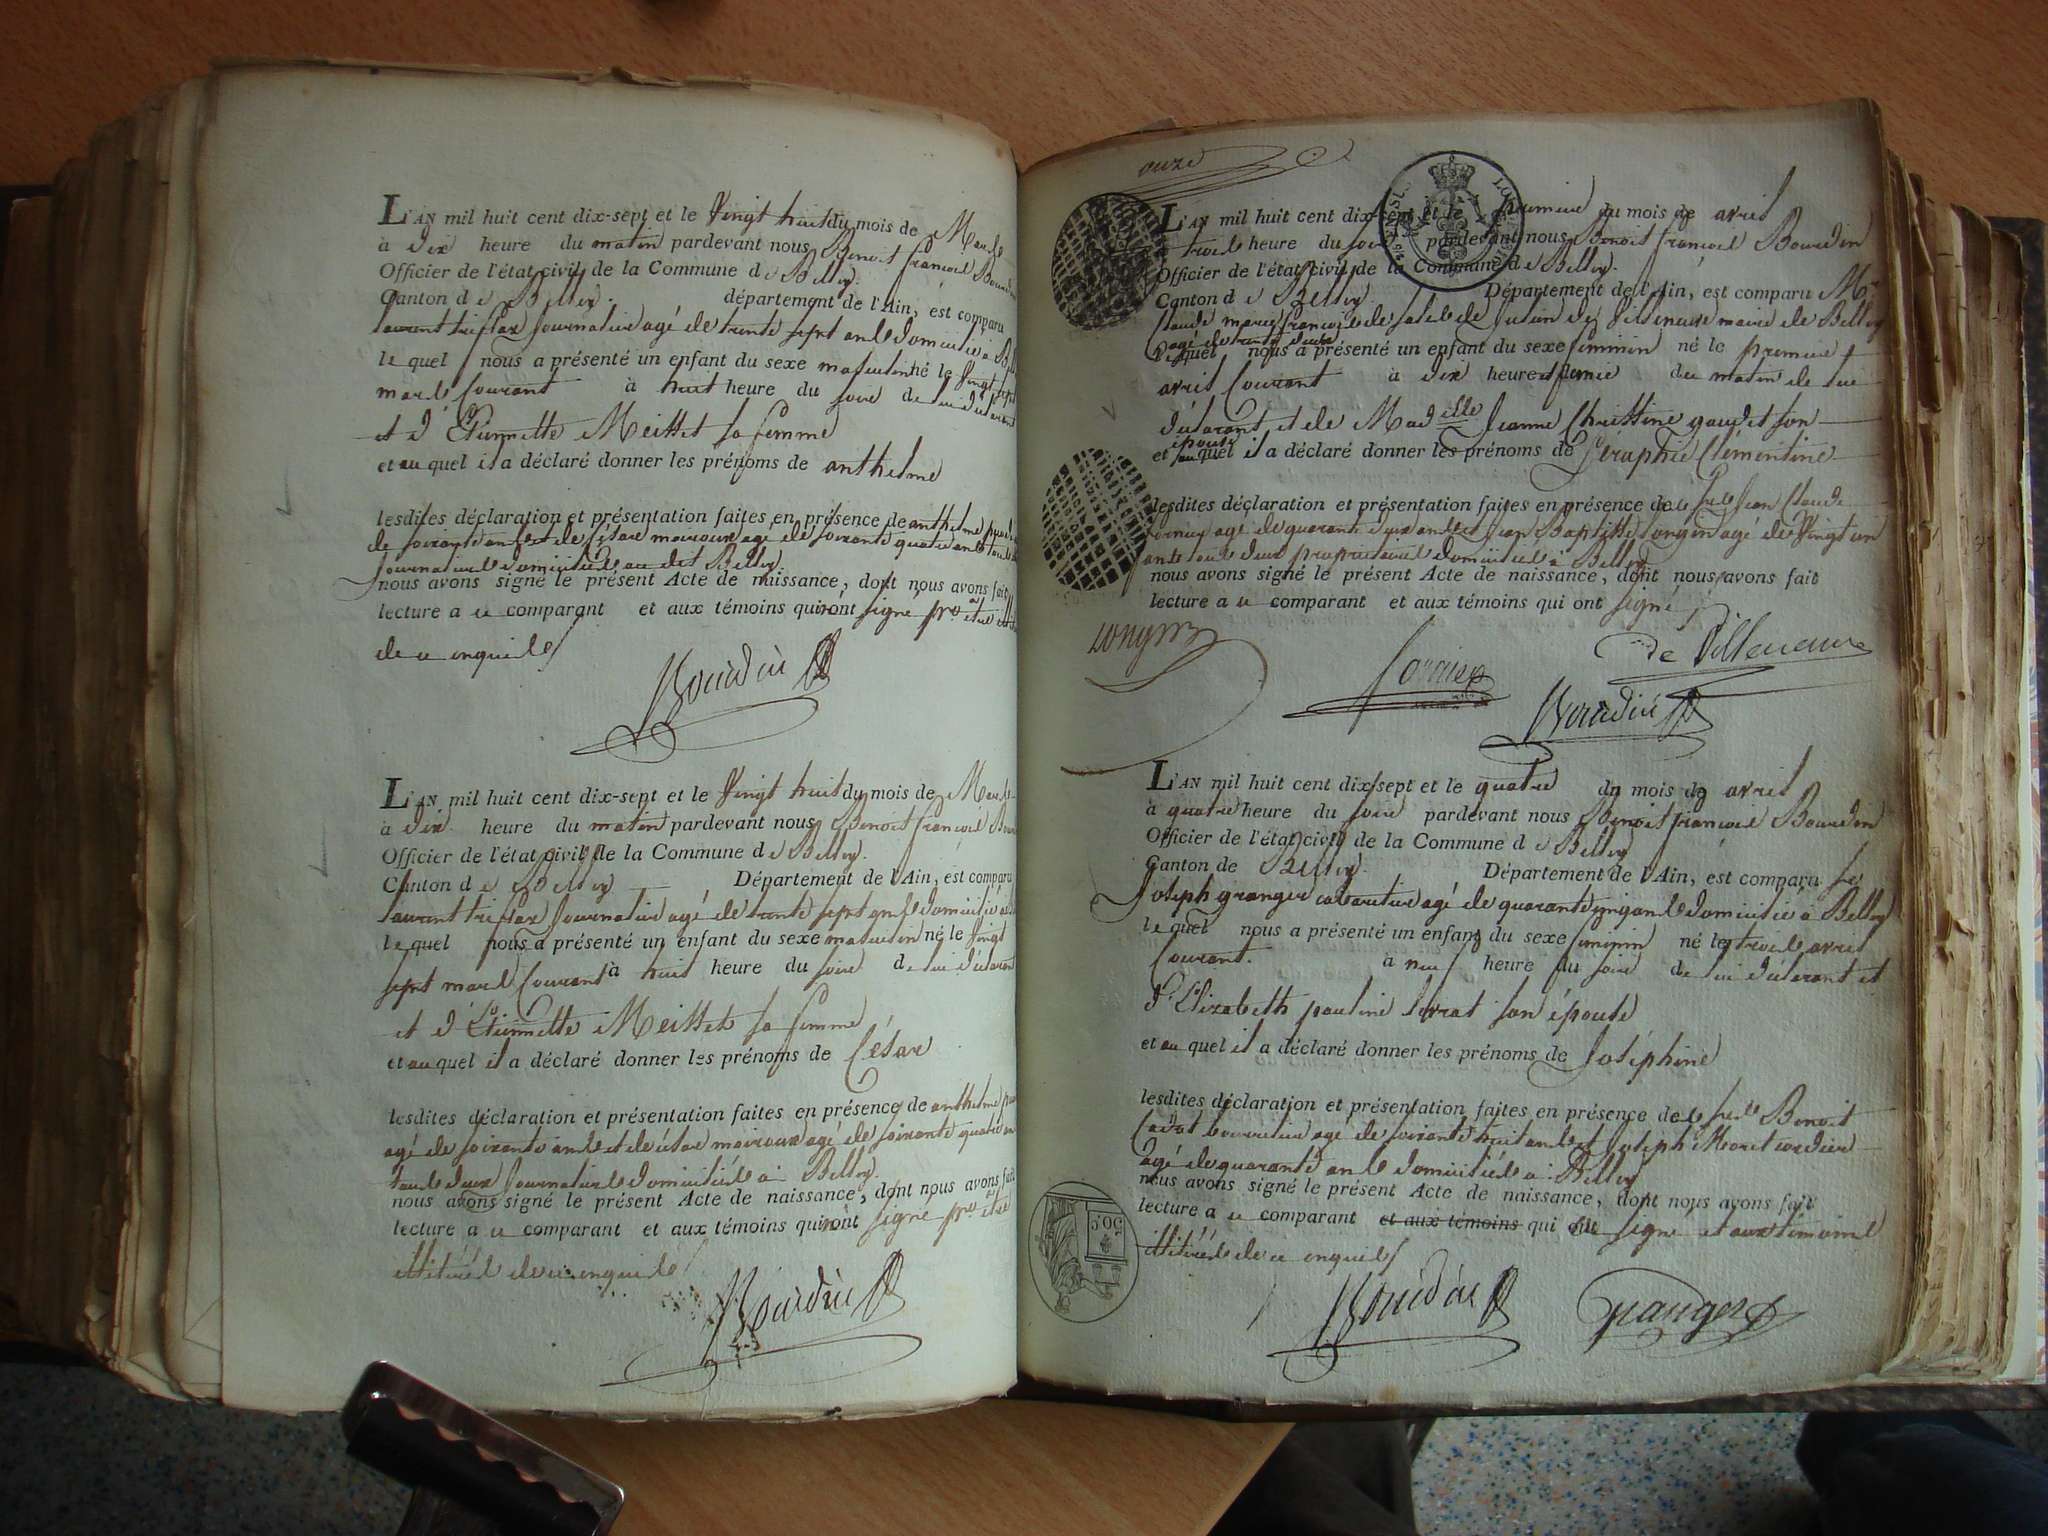 L'AN mil huit cent dix-sept et le Vingt huit du mois de Mars
à dix heure du matin pardevant nous Benoit françois Bourdin
Officier de l'état civil de la Commune de Belley.
Canton de Belley. département de l'Ain, est comparu
laurent triflax Journalier agé de trente sept ans domicilié à
le quel nous a présenté un enfant du sexe masculin né le Vingt sept
mars Courant à huit heure du soir de lui déclarant
et d'Etiennette Meillet sa femme
et au quel il a déclaré donner les prénoms de anthelme
lesdites déclaration et présentation faites en présence de anthelme
de soixante ans et de César moiroux agé de soixante quatre ans tous
Journaliers domiciliés au dit Belley.
nous avons signé le présent Acte de naissance, dont nous avons fait
lecture a ce comparant et aux témoins qui n'ont signé pr
de ce enquis
Bourdin
L'AN mil huit cent dix-sept et le Vingt huit du mois de Mars
à dix heure du matin pardevant nous Benoit françois
Officier de l'état civil de la Commune de Belley.
Canton de Belley Département de l'Ain, est comparu
laurent triflax Journalier agé de trente sept ans domicilié
le quel nous a présenté un enfant du sexe masculin né le Vingt
sept mars Courant à huit heure du soir de lui déclarant
et d'Etiennette Meillet sa femme
et au quel il a déclaré donner les prénoms de César
lesdites déclaration et présentation faites en présence de anthelme
agé de soixante ans et de César moiroux agé de soixante quatre ans
tous deux Journaliers domiciliés à Belley.
nous avons signé le présent Acte de naissance, dont nous avons fait
lecture a ce comparant et aux témoins qui n'ont signé pr
illitérés de ce enquis
Bourdin
onze
L'AN mil huit cent dix-sept et le premier du mois de avril
à trois heure du soir pardevant nous Benoit françois Bourdin
Officier de l'état civil de la Commune de Belley.
Canton de Belley. Département de l'Ain, est comparu Mr
Claude marie françois de Sales de Villeneuve maire de Belley
agé de trente deux
le quel nous a présenté un enfant du sexe feminin né le premier
avril Courant à dix heure du matin de lui
déclarant et de Madelle Jeanne Christine gaudet son
épouse
et au quel il a déclaré donner les prénoms de Séraphie Clémentine
lesdites déclaration et présentation faites en présence de srs Jean Claude
agé de quarante deux ans et Jean Baptiste longin agé de Vingt un
ans tous deux proprietaires domiciliés à Belley
nous avons signé le présent Acte de naissance, dont nous avons fait
lecture a ce comparant et aux témoins qui ont signé
de Villeneuve
Bourdin
L'AN mil huit cent dix-sept et le quatre du mois de avril
à quatre heure du soir pardevant nous Benoit françois Bourdin
Officier de l'état civil de la Commune de Belley
Canton de Belley. Département de l'Ain, est comparu sr
Joseph granger cabaretier agé de quarante cinq ans domicilié à Belley
le quel nous a présenté un enfant du sexe feminin né le trois avril
Courant. à neuf heure du soir de lui déclarant et
d'Elizabeth pauline son épouse
et au quel il a déclaré donner les prénoms de Joséphine
lesdites déclaration et présentation faites en présence de srs Benoit
agé de soixante huit ans et Joseph Moret cordier
agé de quarante ans domiciliés à Belley
nous avons signé le présent Acte de naissance, dont nous avons fait
lecture a ce comparant et aux témoins qui signé et aux temoins
illitérés de ce enquis
50 C.
Bourdin
Granger